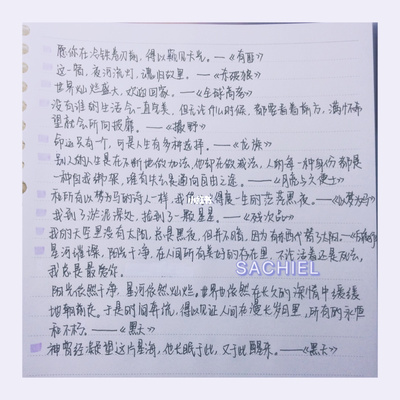 愿你在冷铁卷刃前，得以窥见天光。——《有匪》
这一躺，夜河流灯，魂归故里。——《杀破狼》
世界灿烂盛大，欢迎回家。——《全球高考》
没有谁的生活会一直完美，但无论什么时候，都要看着前方，满怀希
望就会所向披靡。——《撒野》
命运只有一个，可是人生有多种选择。——《龙族》
别人的人生是在不断地做加法，他却在做减法，人的每一种身份都是
一种自我绑架，唯有失去是通向自由之途。——《月亮与六便士》
和所有以梦为马的诗人一样，我 度一生的 黑夜。——《以梦为马》
我到了淤泥深处，捡到了一颗星星。——《残次品》
我的天空里没有太阳，总是黑夜，但并不暗，因为有东西代替了太阳。——《白夜行》
星河璀璨，阳光干净，在人间所有美好的存在里，不论活着还是死去，
我总是最爱你。
SACHIEL
阳光依然干净，星河依然灿烂。世界也依然在长久的深情中缓缓
地朝前走。于是时间奔流，得以见证人间在漫长岁月里，所有的永恒
和不朽。——《黑天》
神曾经凝望这片星海，他长眠于此，又于此醒来。——《黑天》